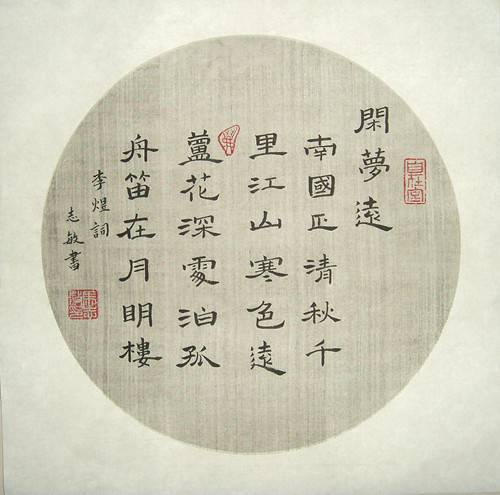 閑夢遠
南國正清秋千
里江山寒色遠
蘆花深處泊孤
舟笛在月明樓
李煜詞
志敏書